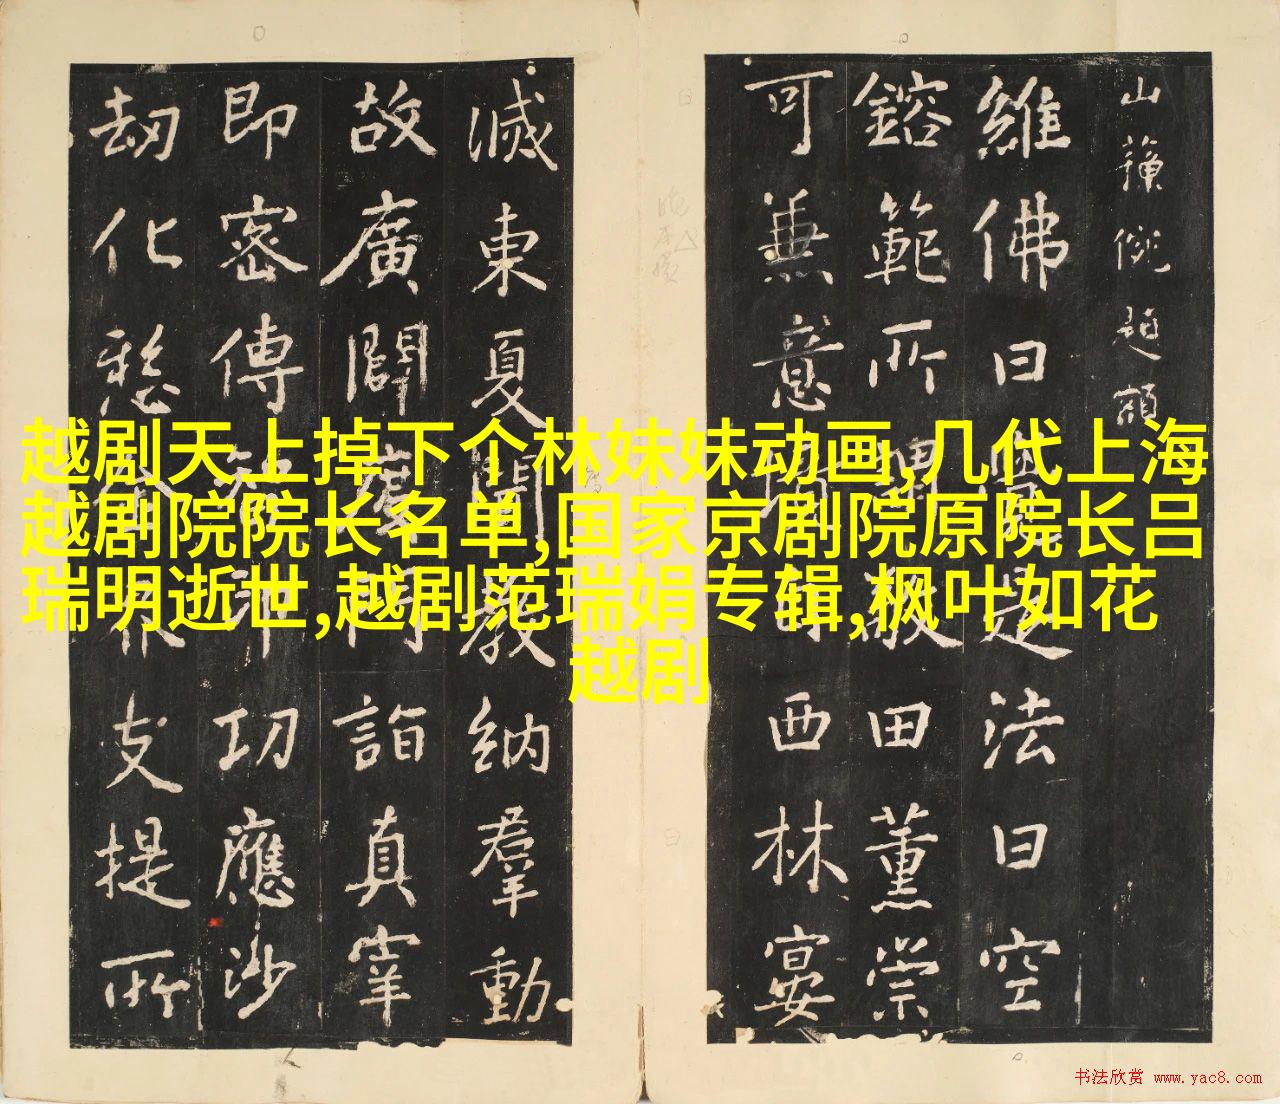 維佛曰是法曰空
鎔範所田薰崇
可兼意西林宴
滅東夏闡教納羣動
故廣闢度門詣真宰
即密傳印功應沙
劫化支提所
越剧天上掉下个林妹妹动画,几代上海
越剧院院长名单,国家京剧院原院长吕
瑞明逝世,越剧范瑞娟专辑,枫叶如花
越剧
书法欣赏 www.yac8.com